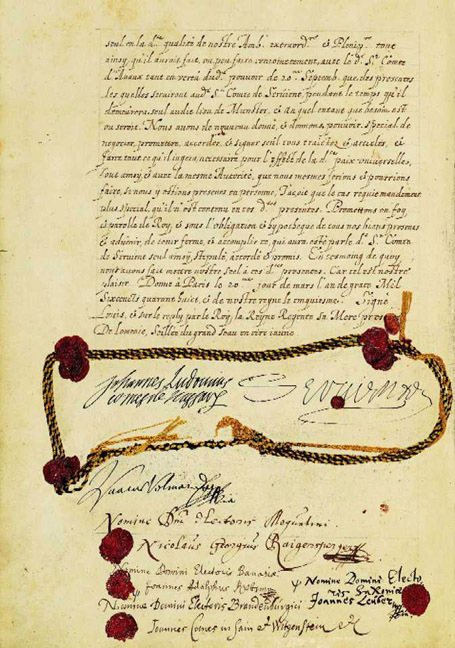 seul en la d.te qualité de nostre Amb.r extraord.re & Plenip.re tout
ainsy, qu'il auroit fait, ou peu faire conioinctement, avec le d.t S.r Comte
d'Avaux tant en vertu dud.t pouvoir de 20.me Septemb. que des presentes
les quelles serviront aud.t S.r Comte de Servient, pendant le temps qu'il
demeurera seul audit lieu de Munster, & au quel entant que besoin est
ou seroit. Nous avons de nouveau donné, & donnons, pouvoir special de
negocier, promettre, accorder, & signer seul tous traictez, & articles, &
faire tout ce qu'il iugera necessaire pour l'effect de la d.te paix universelle,
Tout ainsy, & avec la mesme Autorité, que nous mesmes ferions & pourrions
faire, si nous y estions presents en personne, Jaçoit que le cas requie mandement
plus special, qu'il n'est contenu en ces d.tes presentes. Promettons en foy
& parolle de Roy, & sous l'obligation & hypotheque de tous nos biens presens
& advenir, de tenir ferme, & accomplir ce, qui aura esté par le d.t S.r Comte
de Servient seul ainsy, stipulé, accordé & promis. En tesmoing de quoy
nous avons fait mettre nostre seel à ces d.tes presentes. Car tel est nostre
plaisir. Donné à Paris le 20.me jour de mars l'an de grace Mil
Sixcents quarante huict, & de nostre regne le cinquiesme. Signe
Louis, & sur le reply par le Roy, la Royne Regente sa Mere presente
De Lomenie, Seillée du grand Seau en cire iaune
Johannes Ludovicus
comes de Nassau
Servien
Isaac Volmar
Nomine Dni Electoris Moguntini
Nicolaus Georgius Raigensperger
Nomine Domini Electoris Bavariae
Joannes Adolphus
Nomine Domini Electo
ris Saxoniae
Joannes Leuber
Nomine Domini Electoris Brandenburgici
Joannes Comes in Sain & Witgenstein